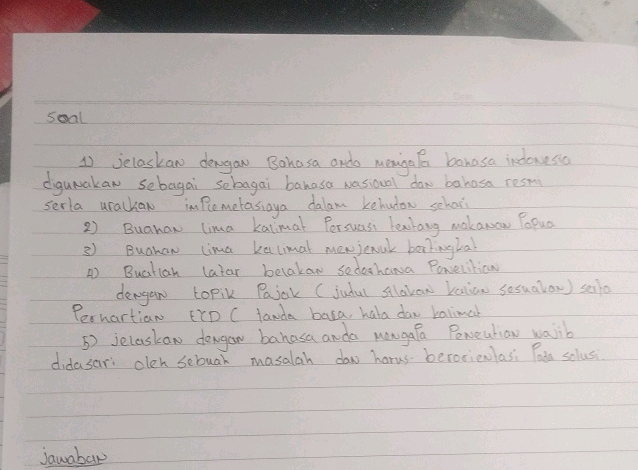 Soal
1) jelaskan dengan Bahasa anda mengapa bahasa indonesia
digunakan sebagai sebagai bahasa nasional dan bahasa resmi
serta uraikan implemetasiaya dalam kehudan sehari
2) Buahan lima kalimat Persuasi tentang makanan Papua
3) Buahan lima kalimat menjenuk bertingkat
4) Buatlah latar belakan sederhana Penelitian
dengan topik Pajak (judul silakan kalian sesuaikan) serta
Perhartian EYD ( tanda baca, kata dan kalimat
5) jelaskan dengan bahasa anda mengapa Penelitian wajib
didasari oleh sebuah masalah dan harus berorientasi Pada solusi.
jawaban